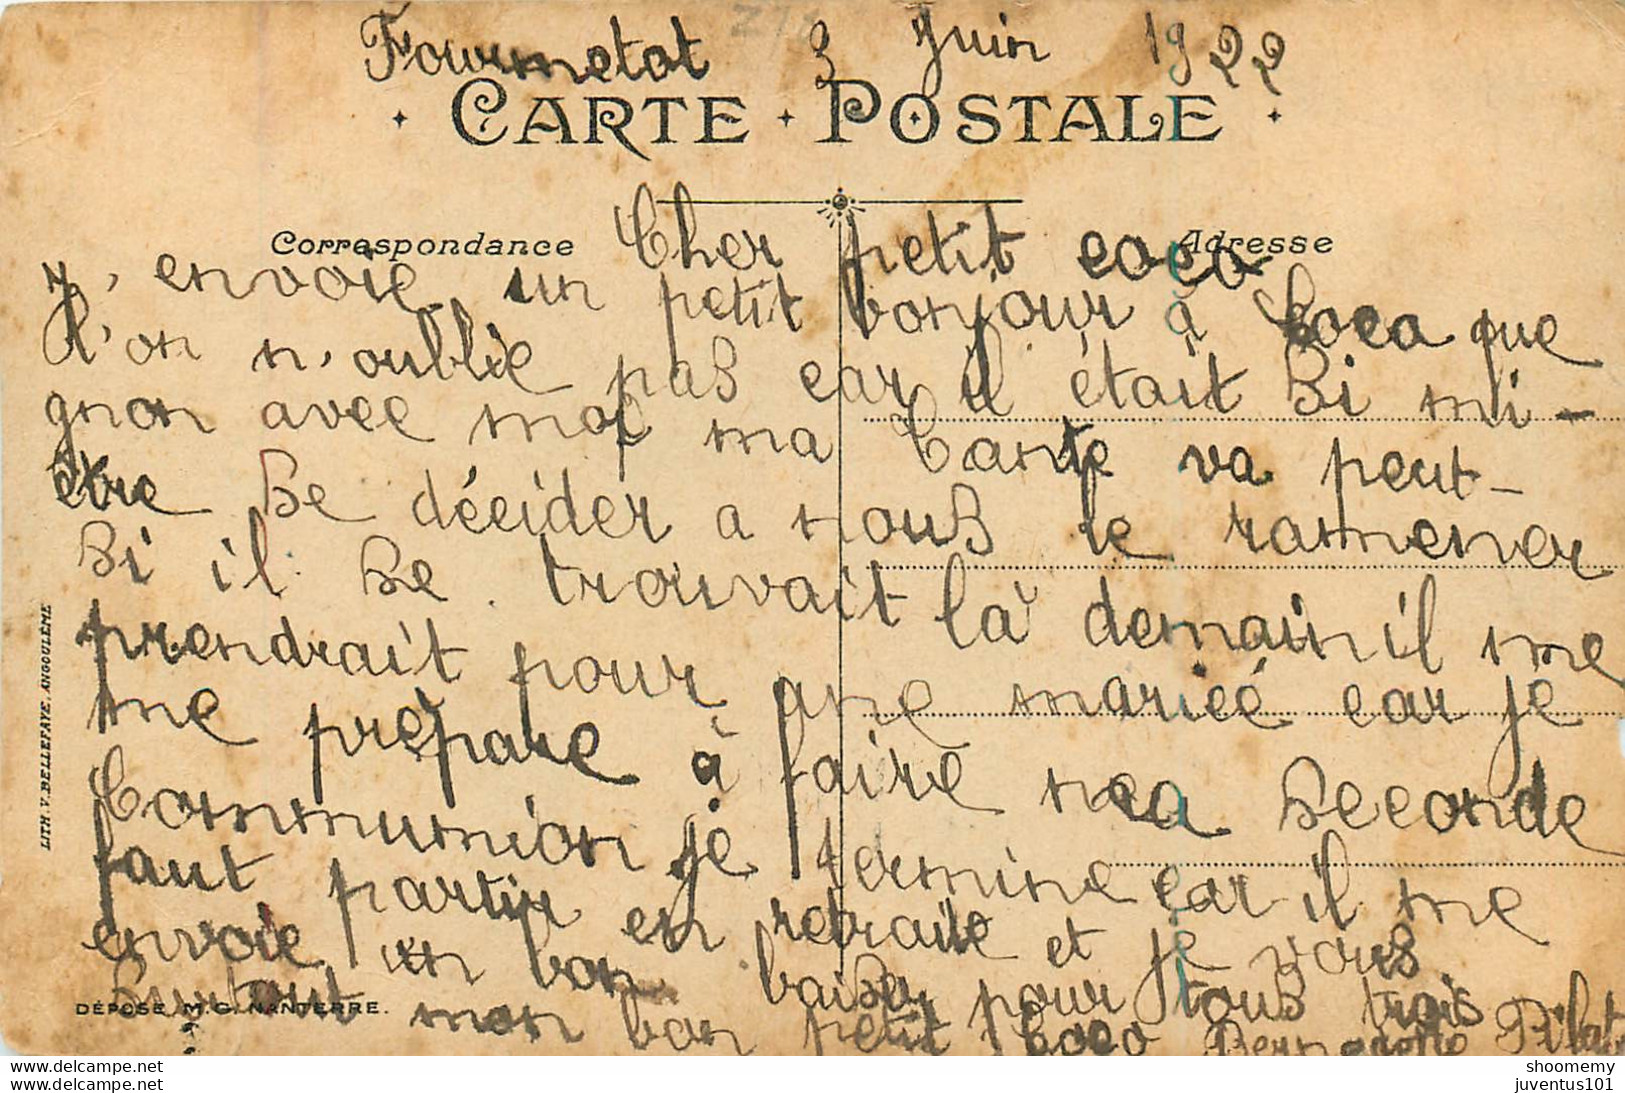 Fourmetot 3 Juin 1922
CARTE POSTALE
Correspondance
Adresse
Cher petit coco
J'envoie un petit bonjour à Coco que
l'on n'oublie pas car il était si mi-
gnon avec moi ma tante va peut-
être se décider a nous le ramener
si il se trouvait là demain il me
prendrait pour une mariée car je
me prépare à faire ma seconde
Communion je termine car il me
faut partir en retraite et je vous
envoie un bon baiser pour tous trois
Surtout mon bon petit Coco
LITH. V. BELLEFAYE, ANGOULÊME
DÉPOSÉ M. G. NANTERRE.
Visit shoomemy's store at delcampe.net
shoomemy
juventus101